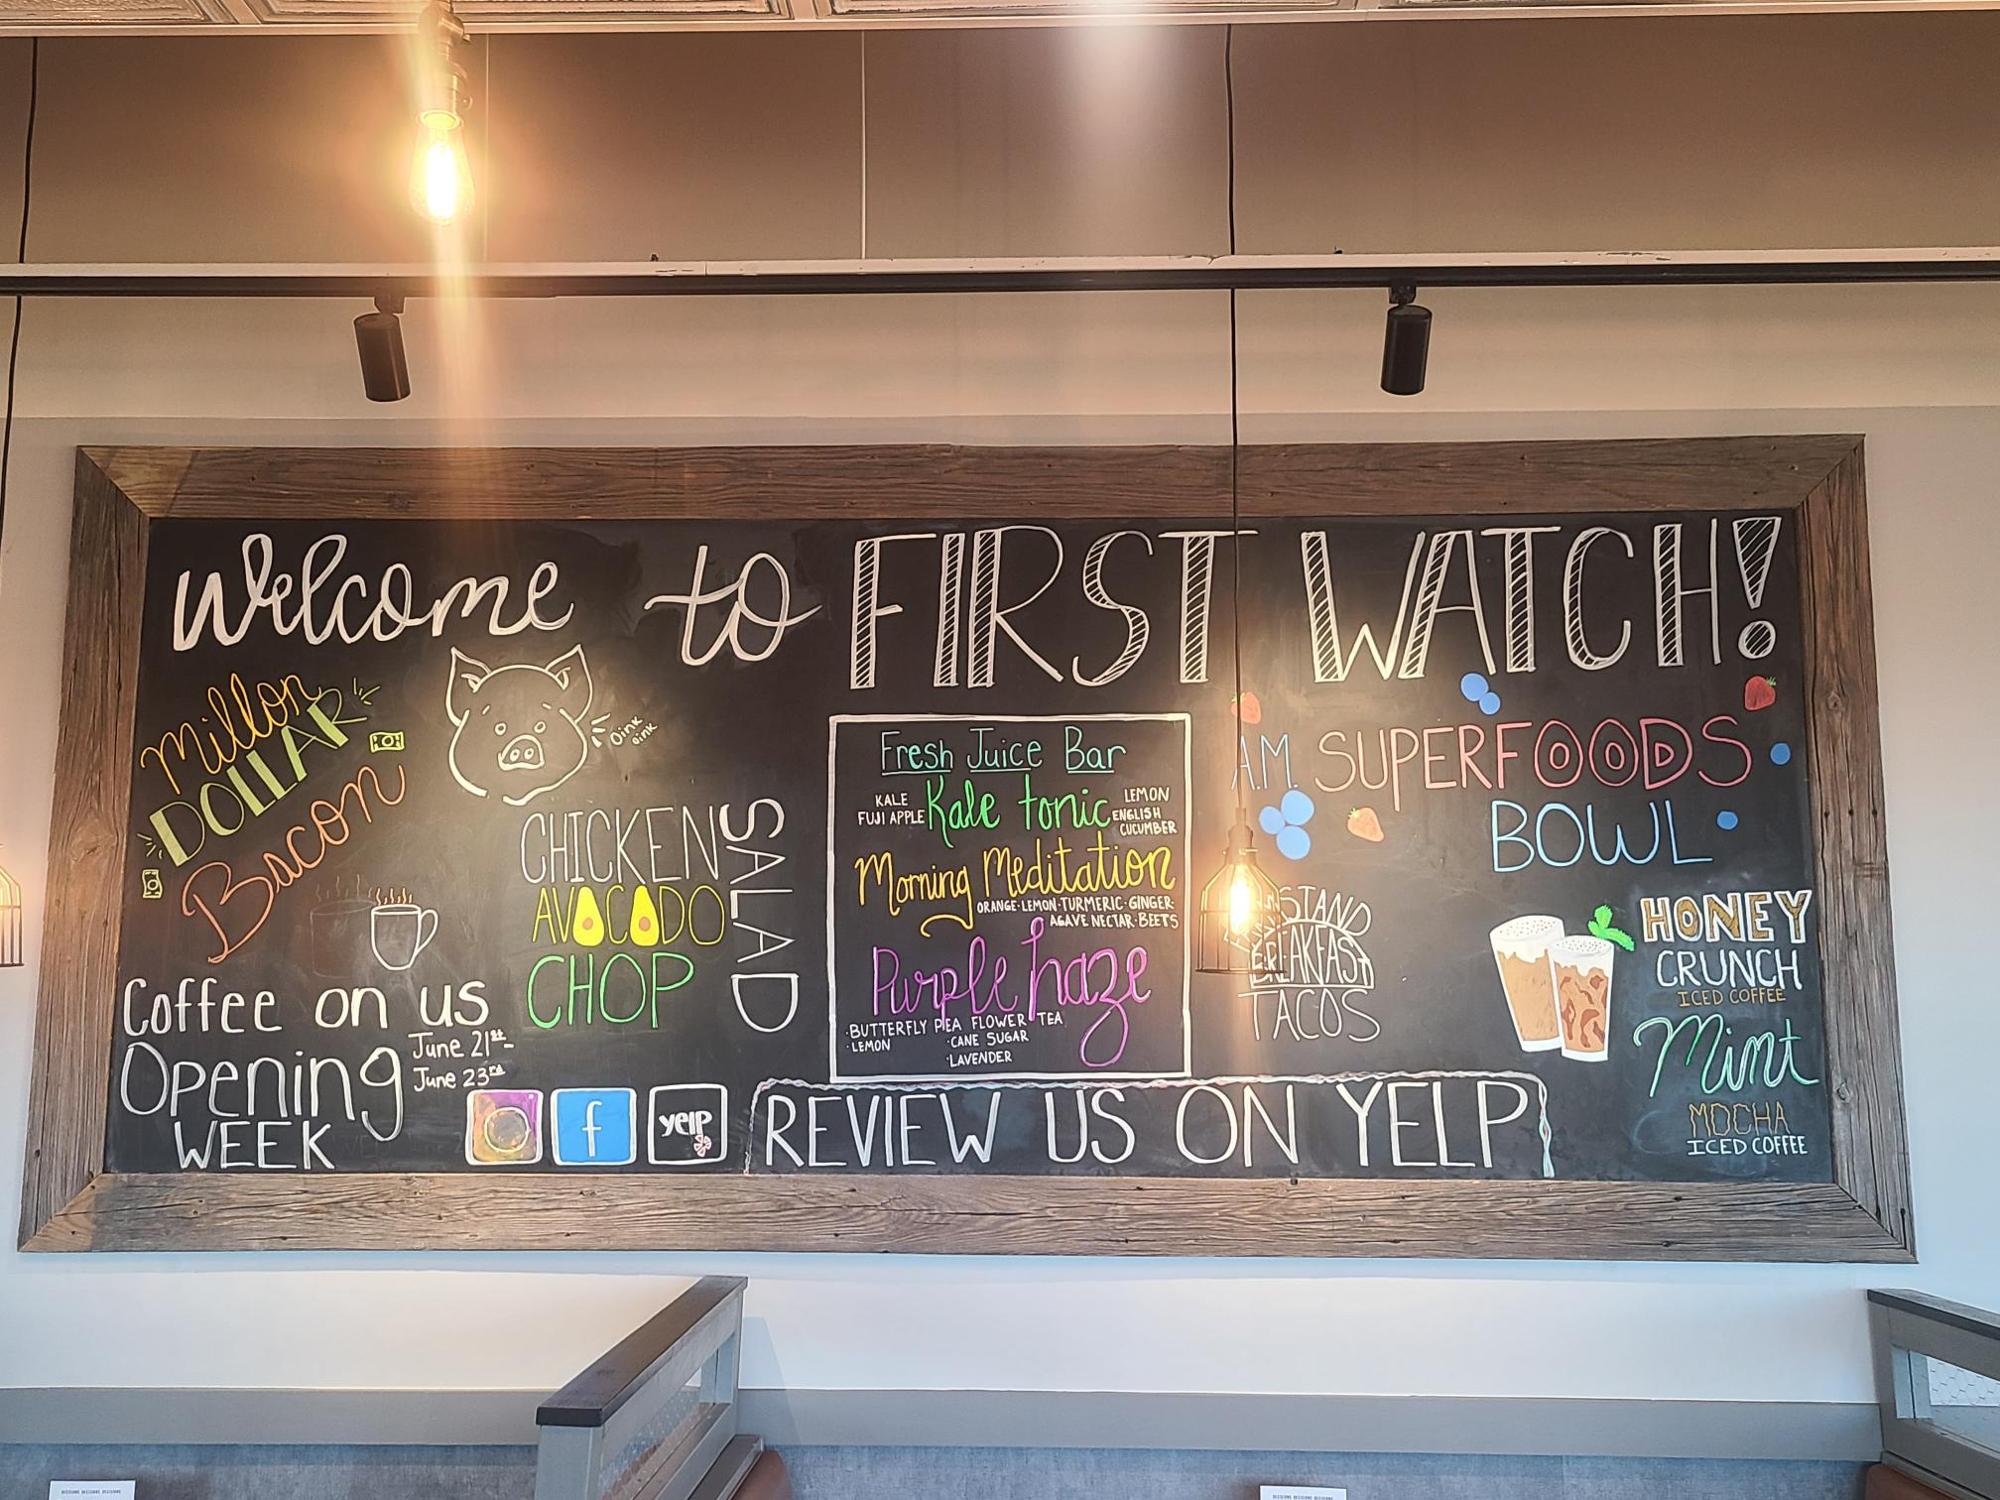 Welcome to FIRST WATCH!
Millon
DOLLAR
Bacon
Oink
oink
CHICKEN
AVOCADO
CHOP
SALAD
Coffee on us
Opening
WEEK
June 21st-
June 23rd
yelp
Fresh Juice Bar
Kale tonic
KALE
FUJI APPLE
LEMON
ENGLISH
CUCUMBER
Morning Meditation
ORANGE·LEMON·TURMERIC·GINGER·
AGAVE NECTAR·BEETS
Purple haze
·BUTTERFLY PEA FLOWER TEA
·LEMON
·CANE SUGAR
·LAVENDER
REVIEW US ON YELP
A.M. SUPERFOODS
BOWL
STAND
BREAKFAST
TACOS
HONEY
CRUNCH
ICED COFFEE
Mint
MOCHA
ICED COFFEE